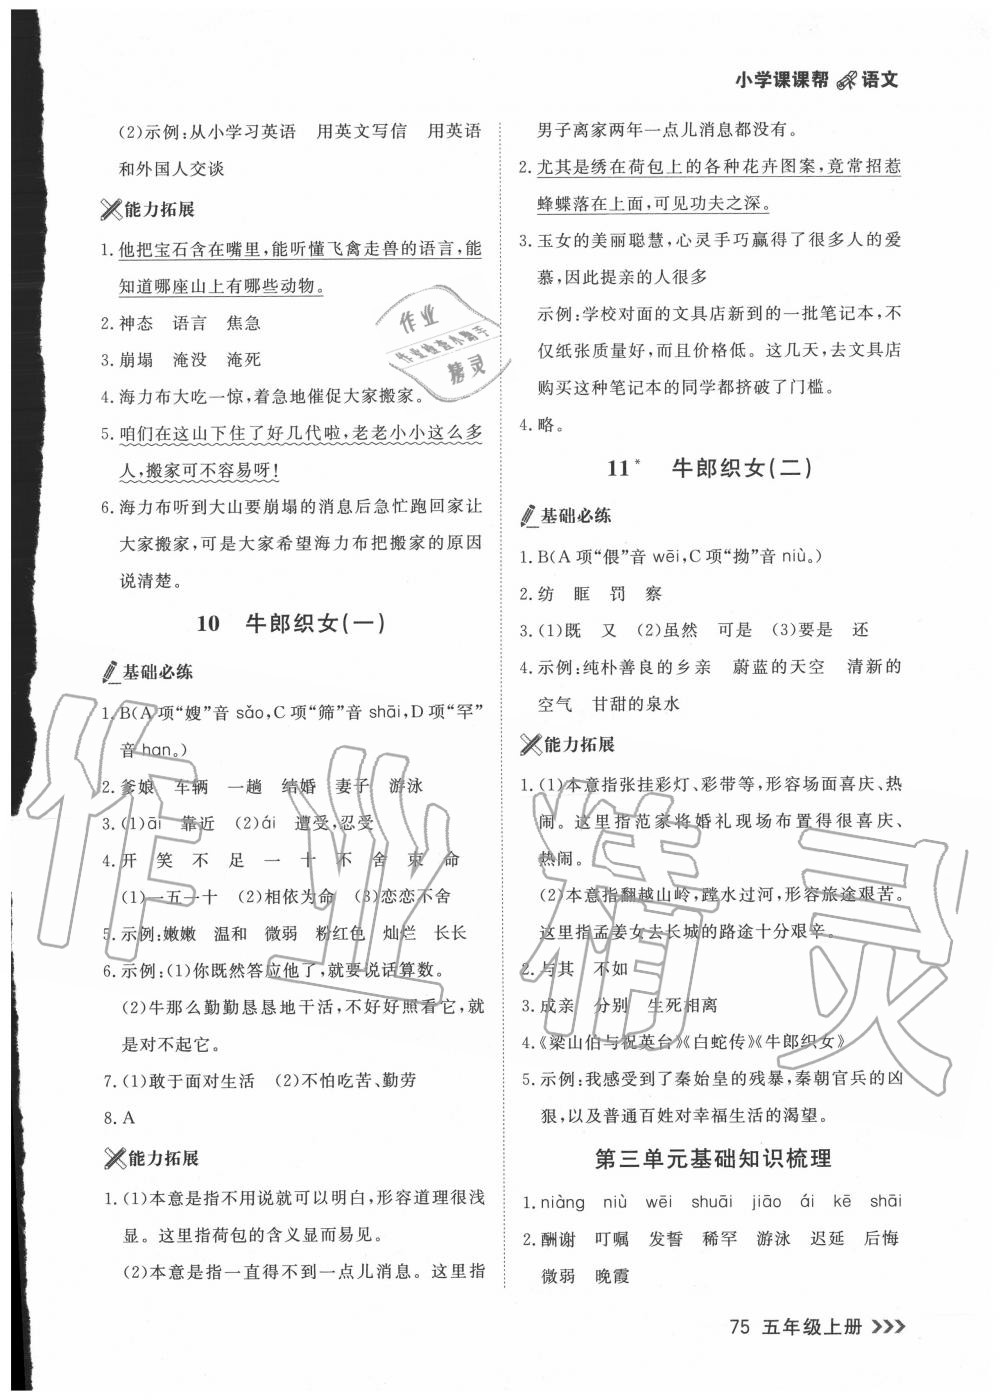 小学课课帮 语文
(2)示例:从小学习英语　用英文写信　用英语
和外国人交谈
能力拓展
1. 他把宝石含在嘴里,能听懂飞禽走兽的语言,能
知道哪座山上有哪些动物。
2. 神态　语言　焦急
3. 崩塌　淹没　淹死
4. 海力布大吃一惊,着急地催促大家搬家。
5. 咱们在这山下住了好几代啦,老老小小这么多
人,搬家可不容易呀!
6. 海力布听到大山要崩塌的消息后急忙跑回家让
大家搬家,可是大家希望海力布把搬家的原因
说清楚。
10　牛郎织女(一)
基础必练
1. B(A项“嫂”音sǎo,C项“筛”音shāi,D项“罕”
音han。)
2. 爹娘　车辆　一趟　结婚　妻子　游泳
3. (1)āi　靠近　(2)ái　遭受,忍受
4. 开　笑　不　足　一　十　不　舍　束　命
(1)一五一十　(2)相依为命　(3)恋恋不舍
5. 示例:嫩嫩　温和　微弱　粉红色　灿烂　长长
6. 示例:(1)你既然答应他了,就要说话算数。
(2)牛那么勤勤恳恳地干活,不好好照看它,就
是对不起它。
7. (1)敢于面对生活　(2)不怕吃苦、勤劳
8. A
能力拓展
1. (1)本意是指不用说就可以明白,形容道理很浅
显。这里指荷包的含义显而易见。
(2)本意是指一直得不到一点儿消息。这里指
男子离家两年一点儿消息都没有。
2. 尤其是绣在荷包上的各种花卉图案,竟常招惹
蜂蝶落在上面,可见功夫之深。
3. 玉女的美丽聪慧,心灵手巧赢得了很多人的爱
慕,因此提亲的人很多
示例:学校对面的文具店新到的一批笔记本,不
仅纸张质量好,而且价格低。这几天,去文具店
购买这种笔记本的同学都挤破了门槛。
4. 略。
11*　牛郎织女(二)
基础必练
1. B(A项“偎”音wēi,C项“拗”音niù。)
2. 纺　眶　罚　察
3. (1)既　又　(2)虽然　可是　(3)要是　还
4. 示例:纯朴善良的乡亲　蔚蓝的天空　清新的
空气　甘甜的泉水
能力拓展
1. (1)本意指张挂彩灯、彩带等,形容场面喜庆、热
闹。这里指范家将婚礼现场布置得很喜庆、
热闹。
(2)本意指翻越山岭,蹚水过河,形容旅途艰苦。
这里指孟姜女去长城的路途十分艰辛。
2. 与其　不如
3. 成亲　分别　生死相离
4. 《梁山伯与祝英台》《白蛇传》《牛郎织女》
5. 示例:我感受到了秦始皇的残暴,秦朝官兵的凶
狠,以及普通百姓对幸福生活的渴望。
第三单元基础知识梳理
1. niàng　niù　wēi　shuāi　jiāo　ái　kē　shāi
2. 酬谢　叮嘱　发誓　稀罕　游泳　迟延　后悔
微弱　晚霞
75 五年级上册
作业精灵
作业
作业检查小助手
精灵